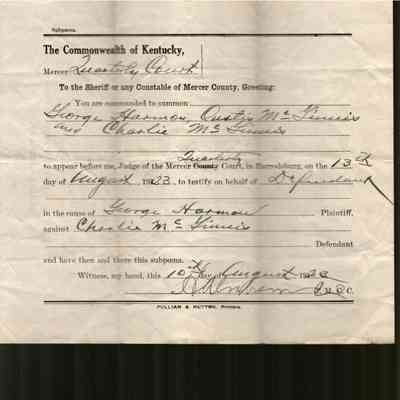 Subpoena.
The Commonwealth of Kentucky,
Mercer Quarterly Court
To the Sheriff or any Constable of Mercer County, Greeting:
You are commanded to summon
George Harmon, Mc Ginnis
and Charlie Mc Ginnis
Quarterly
to appear before me, Judge of the Mercer County Court, in Harrodsburg, on the 13th
day of August 1923, to testify on behalf of Defendant
in the cause of George Harmon Plaintiff,
against Charlie Mc Ginnis
Defendant
and have then and there this subpoena.
Witness, my hand, this 10th day of August 192
C.
PULLIAM & NUTTER, Printers.